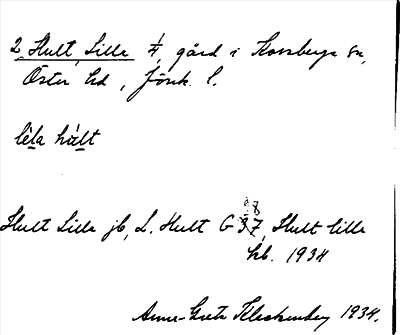 2 Hult, Lilla 1/4, gård i Korsberga sn,
Öster hd, Jönk. l.
lela hält
Hult Lilla jb, L. Hult G 37, Hult lilla
8
hb. 1934
Anna-Greta 1934.